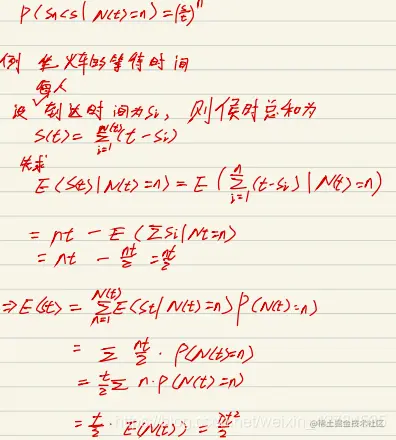 P(Sn<s | N(t)=n)=(s/t)^n
例 坐火车的等待时间
每人
设 到达时间为Si, 则候时总和为
S(t)=∑_{i=1}^{N(t)}(t-Si)
先求
E(S(t)|N(t)=n)=E(∑_{i=1}^{n}(t-Si)|N(t)=n)
=nt-E(∑Si|Nt=n)
=nt-nt/2=nt/2
⇒E(St)=∑_{n=1}^{N(t)}E(St|N(t)=n)P(N(t)=n)
=∑ nt/2·P(N(t)=n)
=t/2∑ n·P(N(t)=n)
=t/2·E(N(t))=λt²/2
@稀土掘金技术社区